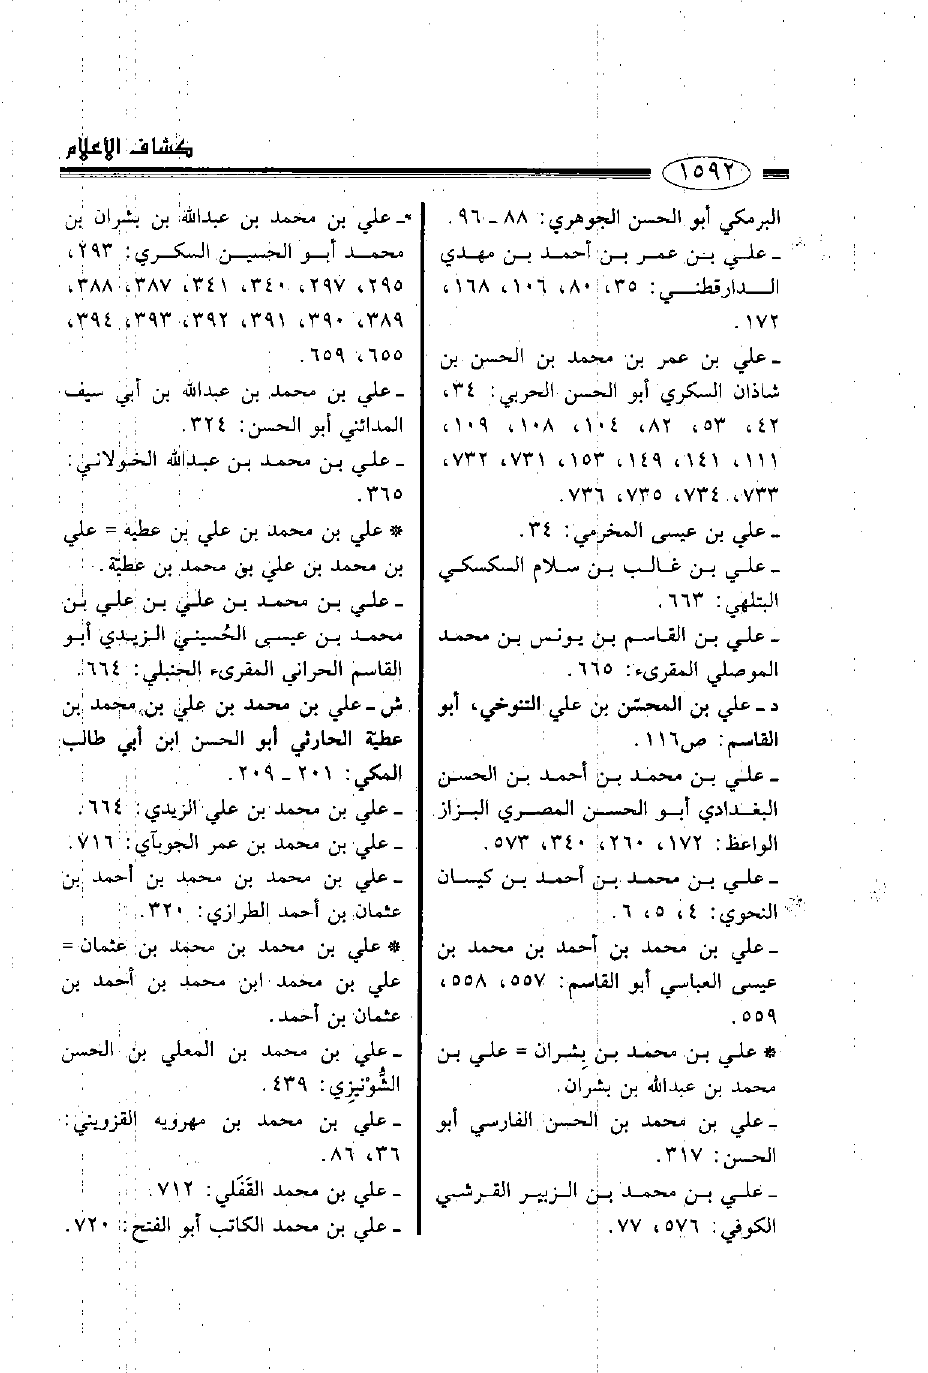 كشاف الأعلام
١٥٩٢
البرمكي أبو الحسن الجوهري: ٨٨ ـ ٩٦.
ـ علي بن عمر بن أحمد بن مهدي
الدارقطني: ٣٥، ٨٠، ١٠٦، ١٦٨،
١٧٢.
ـ علي بن عمر بن محمد بن الحسن بن
شاذان السكري أبو الحسن الحربي: ٣٤،
٤٢، ٥٣، ٨٢، ١٠٤، ١٠٨، ١٠٩،
١١١، ١٤١، ١٤٩، ١٥٣، ٧٣١، ٧٣٢،
٧٣٣، ٧٣٤، ٧٣٥، ٧٣٦.
ـ علي بن عيسى المخرمي: ٣٤.
ـ علي بن غالب بن سلام السكسكي
البتلهي: ٦٦٣.
ـ علي بن القاسم بن يونس بن محمد
الموصلي المقرىء: ٦٦٥.
د ـ علي بن المحسّن بن علي التنوخي، أبو
القاسم: ص١١٦.
ـ علي بن محمد بن أحمد بن الحسن
البغدادي أبو الحسن المصري البزاز
الواعظ: ١٧٢، ٢٦٠، ٣٤٠، ٥٧٣.
ـ علي بن محمد بن أحمد بن كيسان
النحوي: ٤، ٥، ٦.
ـ علي بن محمد بن أحمد بن محمد بن
عيسى العباسي أبو القاسم: ٥٥٧، ٥٥٨،
٥٥٩.
* علي بن محمد بن بِشران = علي بن
محمد بن عبدالله بن بشران.
ـ علي بن محمد بن الحسن الفارسي أبو
الحسن: ٣١٧.
ـ علي بن محمد بن الزبير القرشي
الكوفي: ٥٧٦، ٧٧.
ـ علي بن محمد بن عبدالله بن بشران بن
محمد أبو الحسين السكري: ٢٩٣،
٢٩٥، ٢٩٧، ٣٤٠، ٣٤١، ٣٨٧، ٣٨٨،
٣٨٩، ٣٩٠، ٣٩١، ٣٩٢، ٣٩٣، ٣٩٤،
٦٥٥، ٦٥٩.
ـ علي بن محمد بن عبدالله بن أبي سيف
المدائني أبو الحسن: ٣٢٤.
ـ علي بن محمد بن عبدالله الخولاني:
٣٦٥.
* علي بن محمد بن علي بن عطيه = علي
بن محمد بن علي بن محمد بن عطيّة.
ـ علي بن محمد بن علي بن علي بن
محمد بن عيسى الحُسيني الزيدي أبو
القاسم الحراني المقرىء الحنبلي: ٦٦٤.
ش ـ علي بن محمد بن علي بن محمد بن
عطية الحارثي أبو الحسن ابن أبي طالب
المكي: ٢٠١ ـ ٢٠٩.
ـ علي بن محمد بن علي الزيدي: ٦٦٤.
ـ علي بن محمد بن عمر الجوبآي: ٧١٦.
ـ علي بن محمد بن محمد بن أحمد بن
عثمان بن أحمد الطرازي: ٣٢٠.
* علي بن محمد بن محمد بن عثمان =
علي بن محمد ابن محمد بن أحمد بن
عثمان بن أحمد.
ـ علي بن محمد بن المعلي بن الحسن
الشُّوْنيزي: ٤٣٩.
ـ علي بن محمد بن مهرويه القزويني:
٣٦، ٨٦.
ـ علي بن محمد القَفَلي: ٧١٢.
ـ علي بن محمد الكاتب أبو الفتح: ٧٢٠.